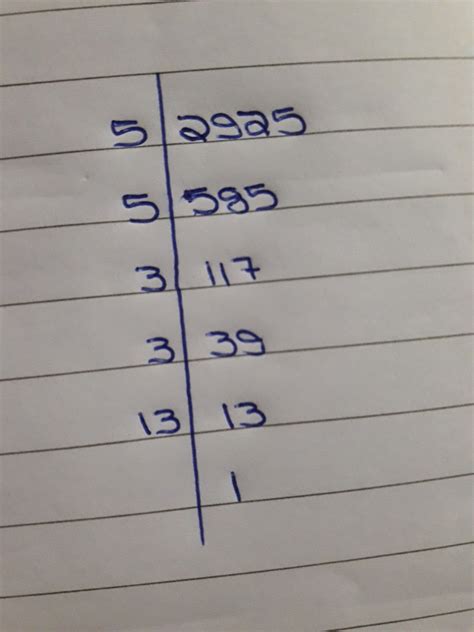 5 2925
5 585
3 117
3 39
13 13
1